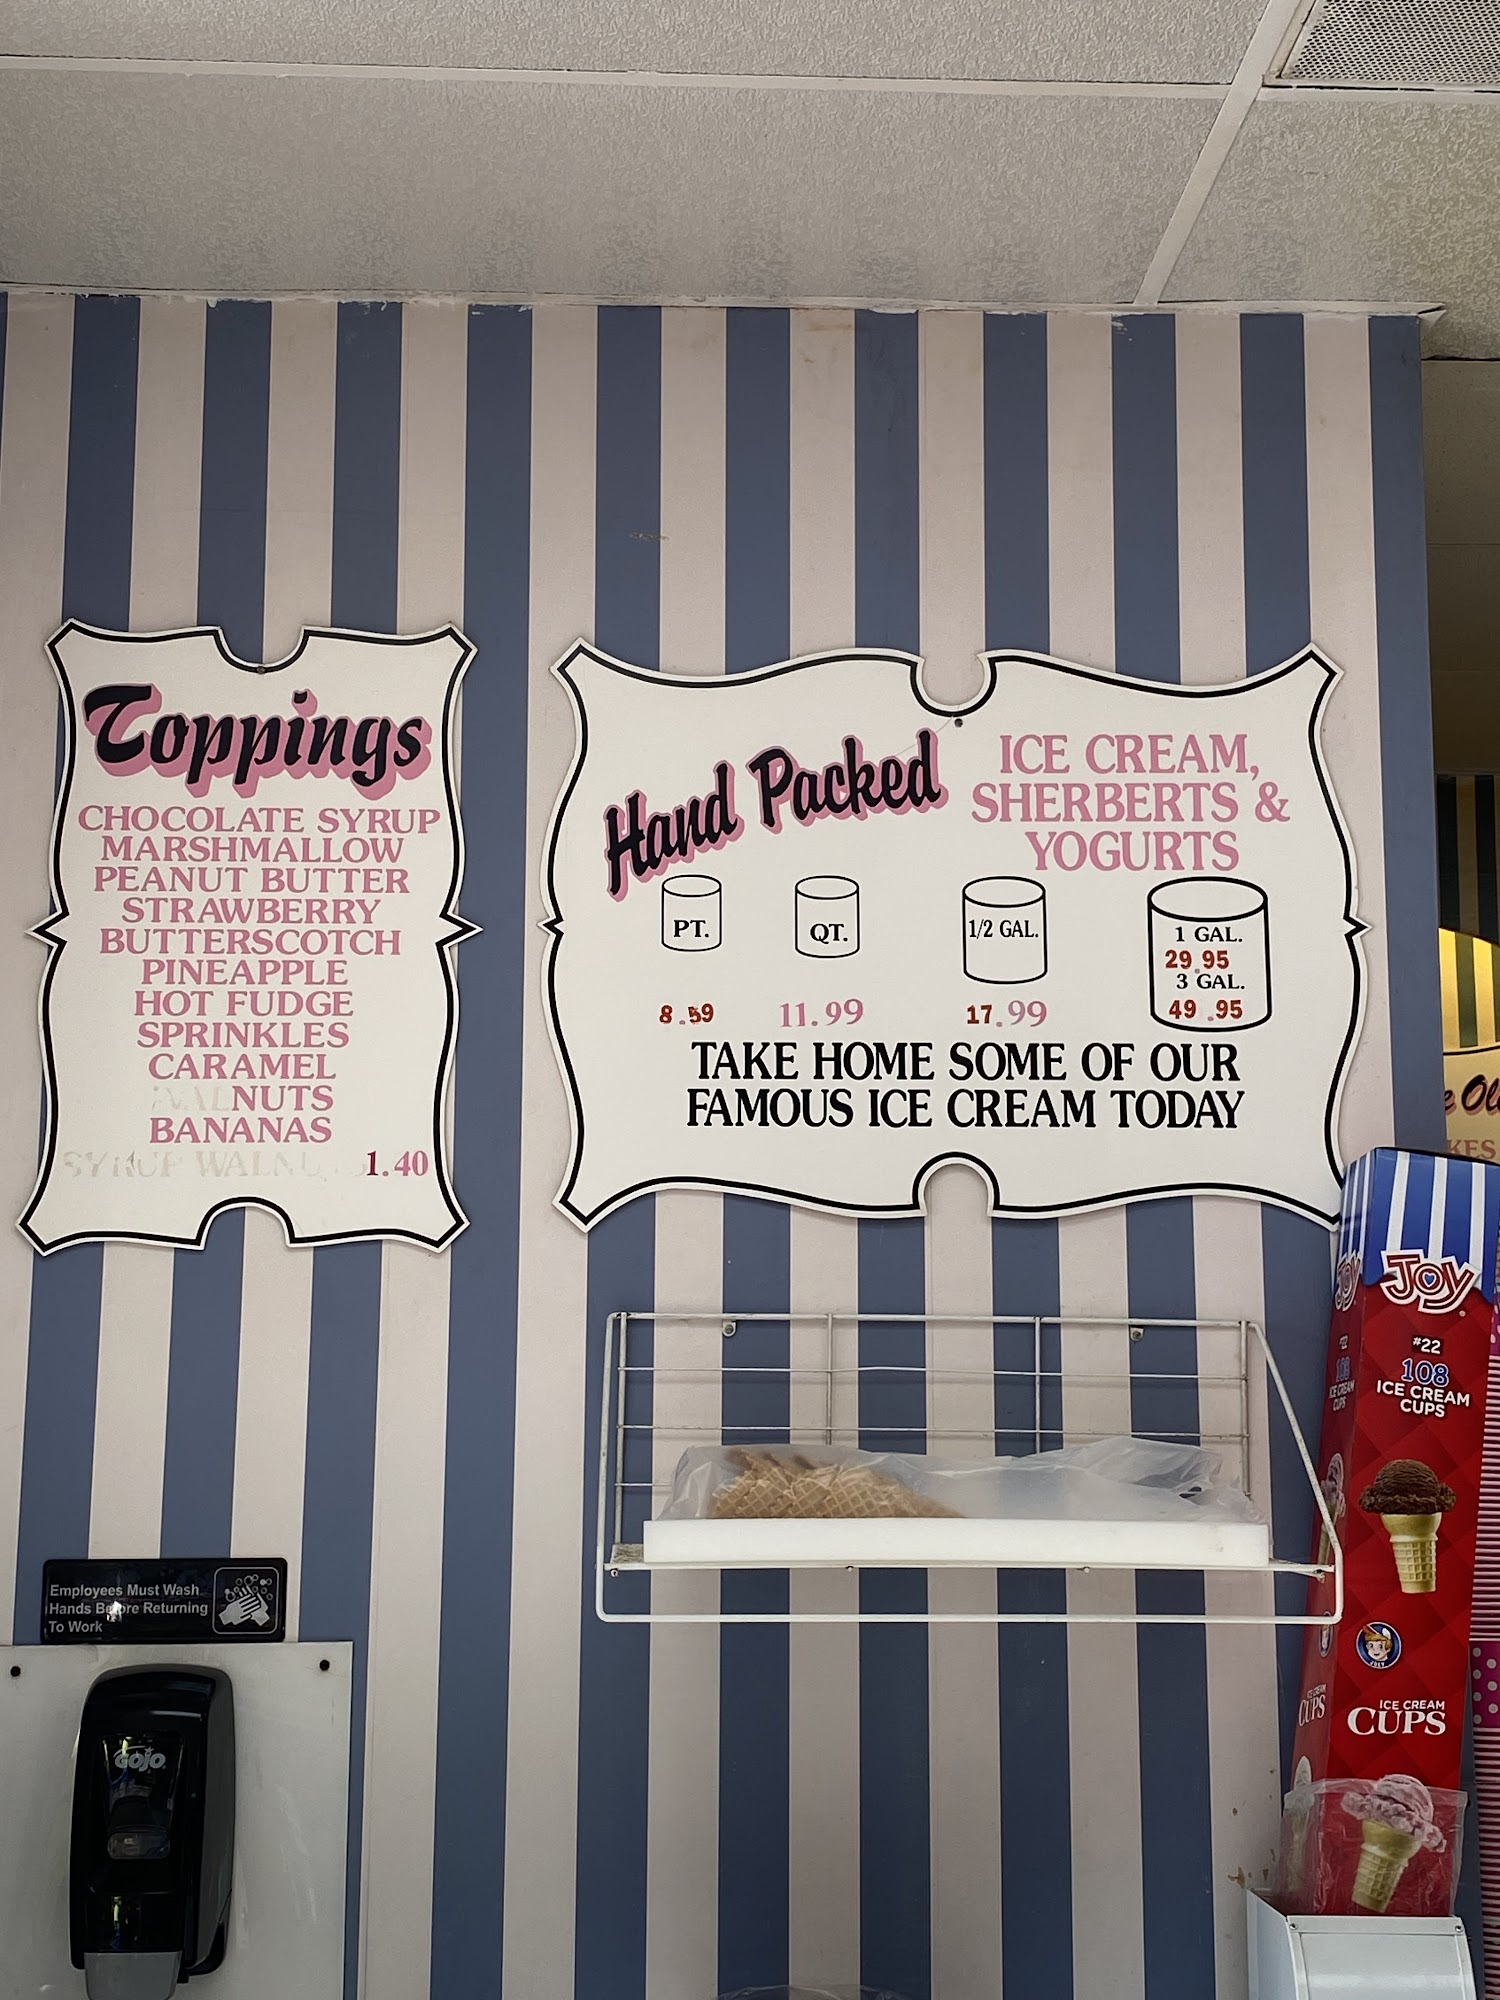 Toppings
CHOCOLATE SYRUP
MARSHMALLOW
PEANUT BUTTER
STRAWBERRY
BUTTERSCOTCH
PINEAPPLE
HOT FUDGE
SPRINKLES
CARAMEL
WALNUTS
BANANAS
SYRUP WALNUTS 1.40
Hand Packed
ICE CREAM,
SHERBERTS &
YOGURTS
PT. QT. 1/2 GAL. 1 GAL.
29.95
3 GAL.
8.59 11.99 17.99 49.95
TAKE HOME SOME OF OUR
FAMOUS ICE CREAM TODAY
KES
JOY
#22
108
ICE CREAM
CUPS
JOEY
ICE CREAM
CUPS
JOY
ICE CREAM
CUPS
CUPS
Employees Must Wash
Hands Before Returning
To Work
GOJO